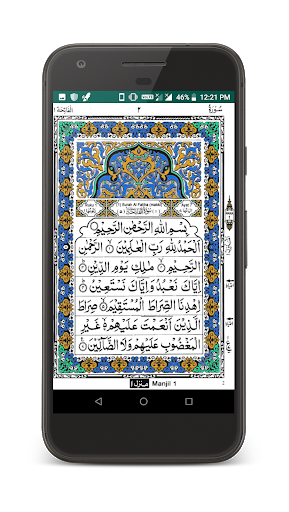 46% 12:21 PM
الفَاتِحَة ٢ سُورَةُ
Surah Al Fatiha
بِسْمِ اللّٰهِ الرَّحْمٰنِ الرَّحِيْمِ
اَلْحَمْدُ لِلّٰهِ رَبِّ الْعٰلَمِيْنَ الرَّحْمٰنِ
الرَّحِيْمِ مٰلِكِ يَوْمِ الدِّيْنِ
اِيَّاكَ نَعْبُدُ وَاِيَّاكَ نَسْتَعِيْنُ
اِهْدِنَا الصِّرَاطَ الْمُسْتَقِيْمَ صِرَاطَ
الَّذِيْنَ اَنْعَمْتَ عَلَيْهِمْ غَيْرِ
الْمَغْضُوْبِ عَلَيْهِمْ وَلَا الضَّآلِّيْنَ
Manjil 1